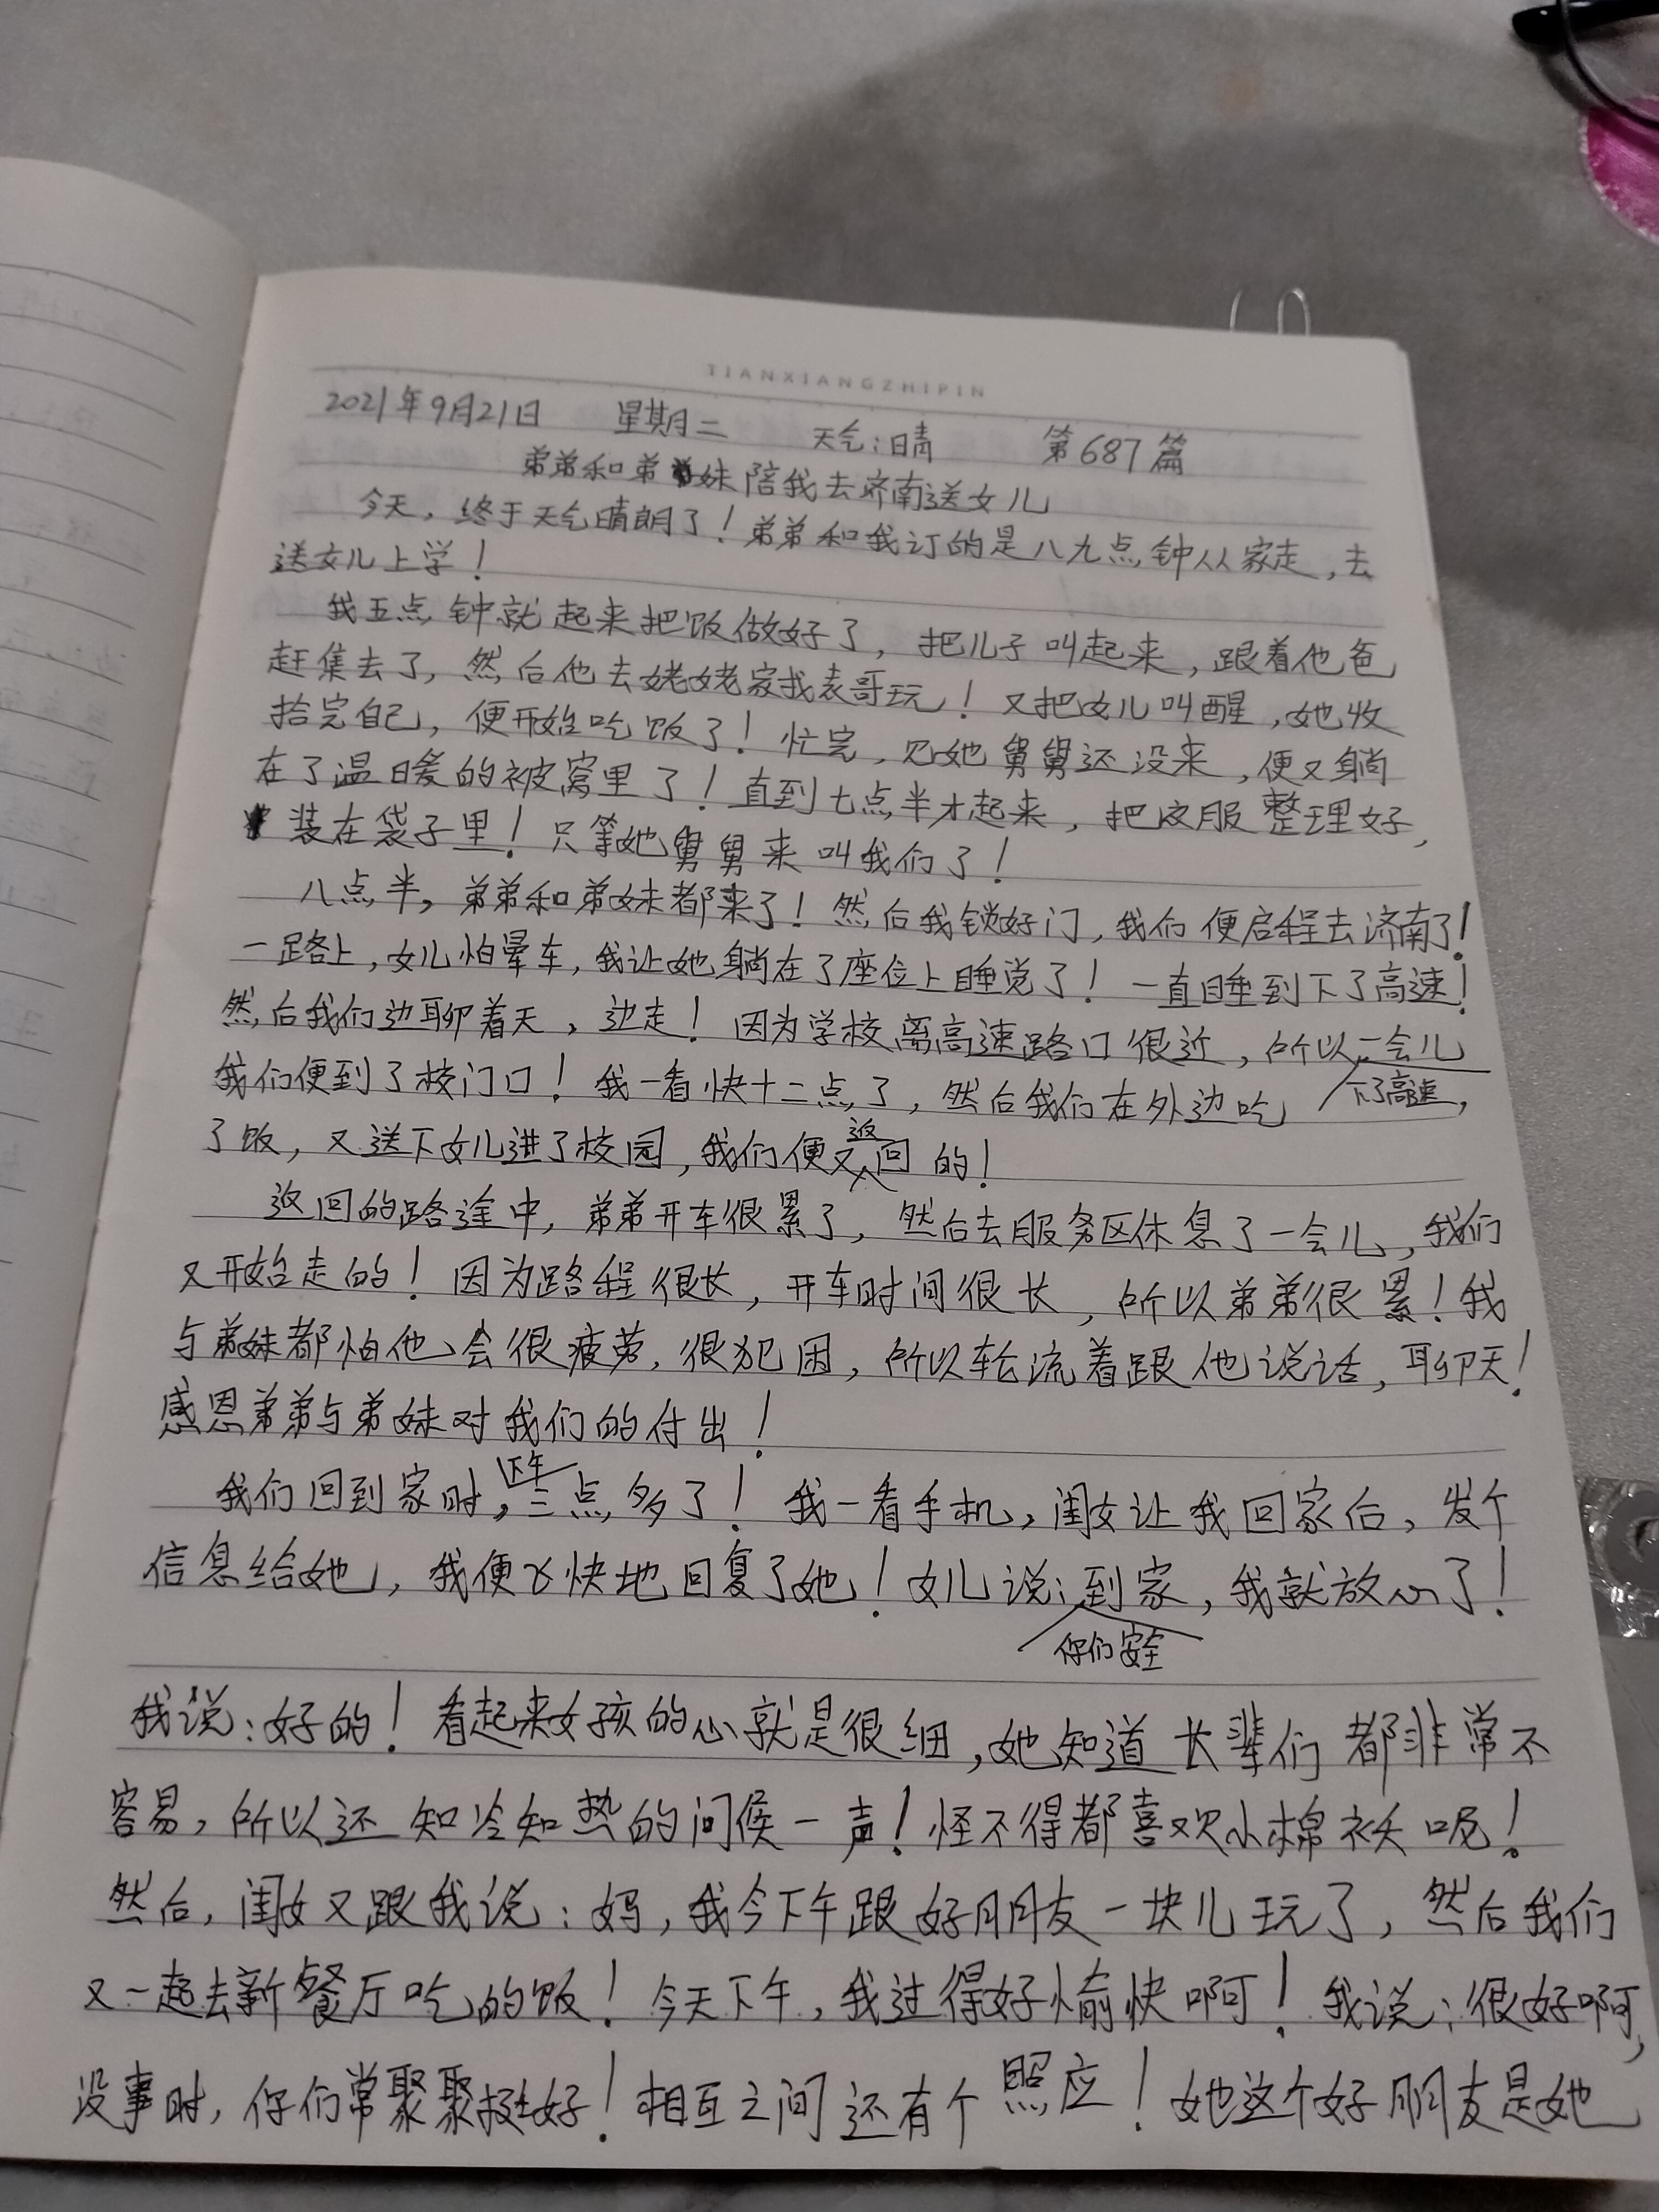 TIANXIANGZHIPIN
2021年9月21日 星期二 天气:晴 第687篇
弟弟和弟妹陪我去济南送女儿
今天,终于天气晴朗了!弟弟和我订的是八九点钟从家走,去
送女儿上学!
我五点钟就起来把饭做好了,把儿子叫起来,跟着他爸
赶集去了,然后他去姥姥家找表哥玩!又把女儿叫醒,她收
拾完自己,便开始吃饭了!忙完,见她舅舅还没来,便又躺
在了温暖的被窝里了!直到七点半才起来,把衣服整理好,
装在袋子里!只等她舅舅来叫我们了!
八点半,弟弟和弟妹都来了!然后我锁好门,我们便启程去济南了!
一路上,女儿怕晕车,我让她躺在了座位上睡觉了!一直睡到下了高速!
然后我们边聊着天,边走!因为学校离高速路口很近,所以下了高速,一会儿
我们便到了校门口!我一看快十二点了,然后我们在外边吃
了饭,又送下女儿进了校园,我们便又返回的!
返回的路途中,弟弟开车很累了,然后去服务区休息了一会儿,我们
又开始走的!因为路程很长,开车时间很长,所以弟弟很累!我
与弟妹都怕他会很疲劳,很犯困,所以轮流着跟他说话,聊天!
感恩弟弟与弟妹对我们的付出!
我们回到家时,下午三点多了!我一看手机,闺女让我回家后,发个
信息给她,我便飞快地回复了她!女儿说:你们安全到家,我就放心了!
我说:好的!看起来女孩的心就是很细,她知道长辈们都非常不
容易,所以还知冷知热的问候一声!怪不得都喜欢小棉袄呢!
然后,闺女又跟我说:妈,我今下午跟好朋友一块儿玩了,然后我们
又一起去新餐厅吃的饭!今天下午,我过得好愉快啊!我说:很好啊,
没事时,你们常聚聚挺好!相互之间还有个照应!她这个好朋友是她